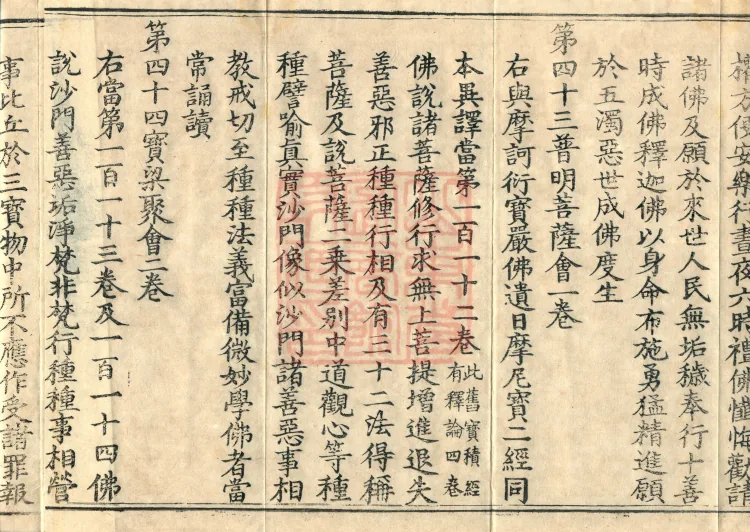 擕方便安樂行晝夜六時禮佛懺悔勸請
諸佛及願於來世人民無垢穢奉行十善
時成佛釋迦佛以身命布施勇猛精進願
於五濁惡世成佛度生
第四十三普明菩薩會一卷
右與摩訶衍寶嚴佛遺日摩尼寶二經同
本異譯當第一百一十二卷此舊寶積經有釋論四卷
佛說諸菩薩修行求無上菩提增進退失
善惡邪正種種行相及有三十二法得稱
菩薩及說菩薩二乗差別中道觀心等種
種譬喻真實沙門像似沙門諸善惡事相
教戒切至種種法義富備微妙學佛者當
常誦讀
第四十四寶梁聚會二卷
右當第一百一十三卷及一百一十四佛
說沙門善惡垢淨梵非梵行種種事相營
事比丘於三寶物中所不應作受諸罪報